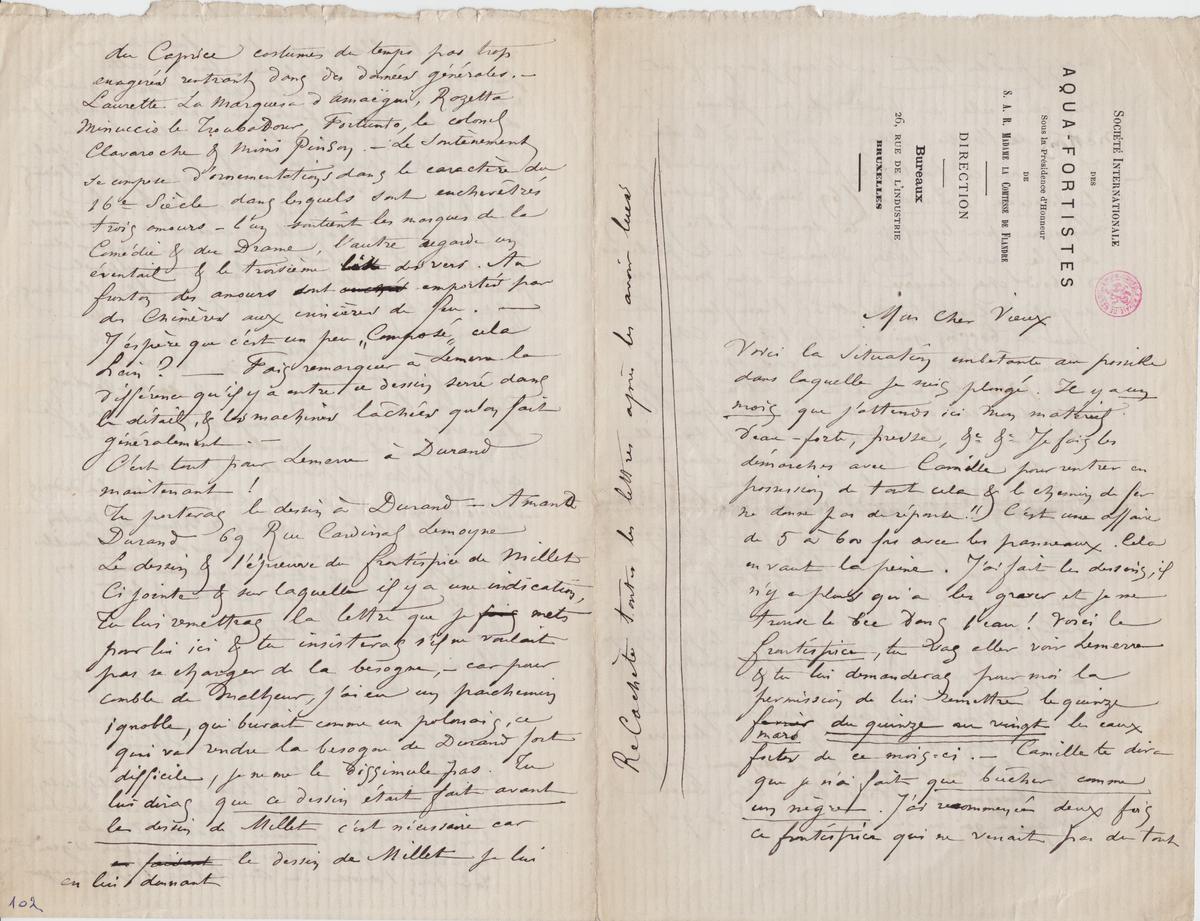 SOCIÉTÉ INTERNATIONALE
DES
AQUA-FORTISTES
Sous la Présidence d'Honneur
DE
S. A. R. MADAME LA COMTESSE DE FLANDRE
DIRECTION
Bureaux
26, RUE DE L'INDUSTRIE
BRUXELLES
Mon Cher Vieux
Voici la situation embêtante au possible
dans laquelle je suis plongé. Il y a un
mois que j'attends ici mon matériel
d'eau-forte, presse, &c &c Je fais les
démarches avec Camille pour rentrer en
possession de tout cela & le chemin de fer
ne donne pas de réponse!!) C'est une affaire
de 5 à 600 frs avec les panneaux. Cela
en vaut la peine. J'ai fait les dessins, il
n'y a plus qu'à les graver et je me
trouve le bec dans l'eau! Voici le
frontispice, tu vas aller voir Lemerre
& tu lui demanderas pour moi la
permission de lui remettre le quinze
mars du quinze au vingt les eaux
fortes de ce mois-ci. — Camille te dira
que je n'ai fait que bûcher comme
un nègre. J'ai recommencé deux fois
ce frontispice qui ne venait pas du tout
ReCachète toutes les lettres après les avoir lues
du Caprice costumes du temps pas trop
exagérés rentrant dans des données générales. —
Laurette. La Marquesa d'amaëgui, Rozetta
Minuccio le Troubadour, Fortunio, le colonel
Clavaroche & Mimi Pinson. — Le Soutènement
se compose d'ornementations dans le caractère du
16e Siècle dans lesquels sont enchevêtrés
trois amours — l'un soutient les masques de la
Comédie & du Drame, l'autre regarde un
éventail & le troisième lit des vers. Au
fronton des amours sont emportés par
des Chimères aux crinières de feu. —
J'espère que c'est un peu „Composé„ cela
hein? — Fais remarquer à Lemerre la
différence qu'il y a entre ce dessin serré dans
le détail, & les machines lâchées qu'on fait
généralement. —
C'est tout pour Lemerre à Durand
maintenant!
Tu porteras le dessin à Durand — Amand
Durand 69 Rue Cardinal Lemoyne
Le dessin & l'épreuve du frontispice de Millet
Ci jointe & sur laquelle il y a une indication,
Tu lui remettras la lettre que je mets
pour lui ici & tu insisteras s'il ne voulait
pas se charger de la besogne, — car pour
comble de Malheur, j'ai eu un parchemin
ignoble, qui buvait comme un polonais, ce
qui va rendre la besogne de Durand fort
difficile, je ne me le dissimule pas. Tu
lui diras que ce dessin était fait avant
les dessin de Millet c'est nécessaire car
en faisant le dessin de Millet je lui
en lui donnant
102